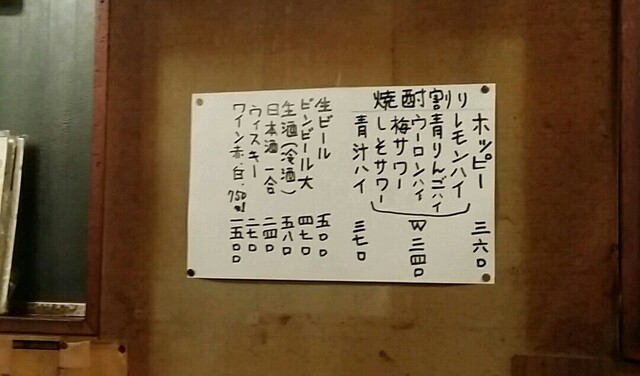 焼酎割り
ホッピー 三六〇
レモンハイ
青りんごハイ
ウーロンハイ
梅サワー
しそサワー
¥二四〇
青汁ハイ 三七〇
生ビール 五〇〇
ビンビール大 四七〇
生酒(冷酒) 五八〇
日本酒一合 二四〇
ウィスキー 二七〇
ワイン赤、白、750ml 一五〇〇